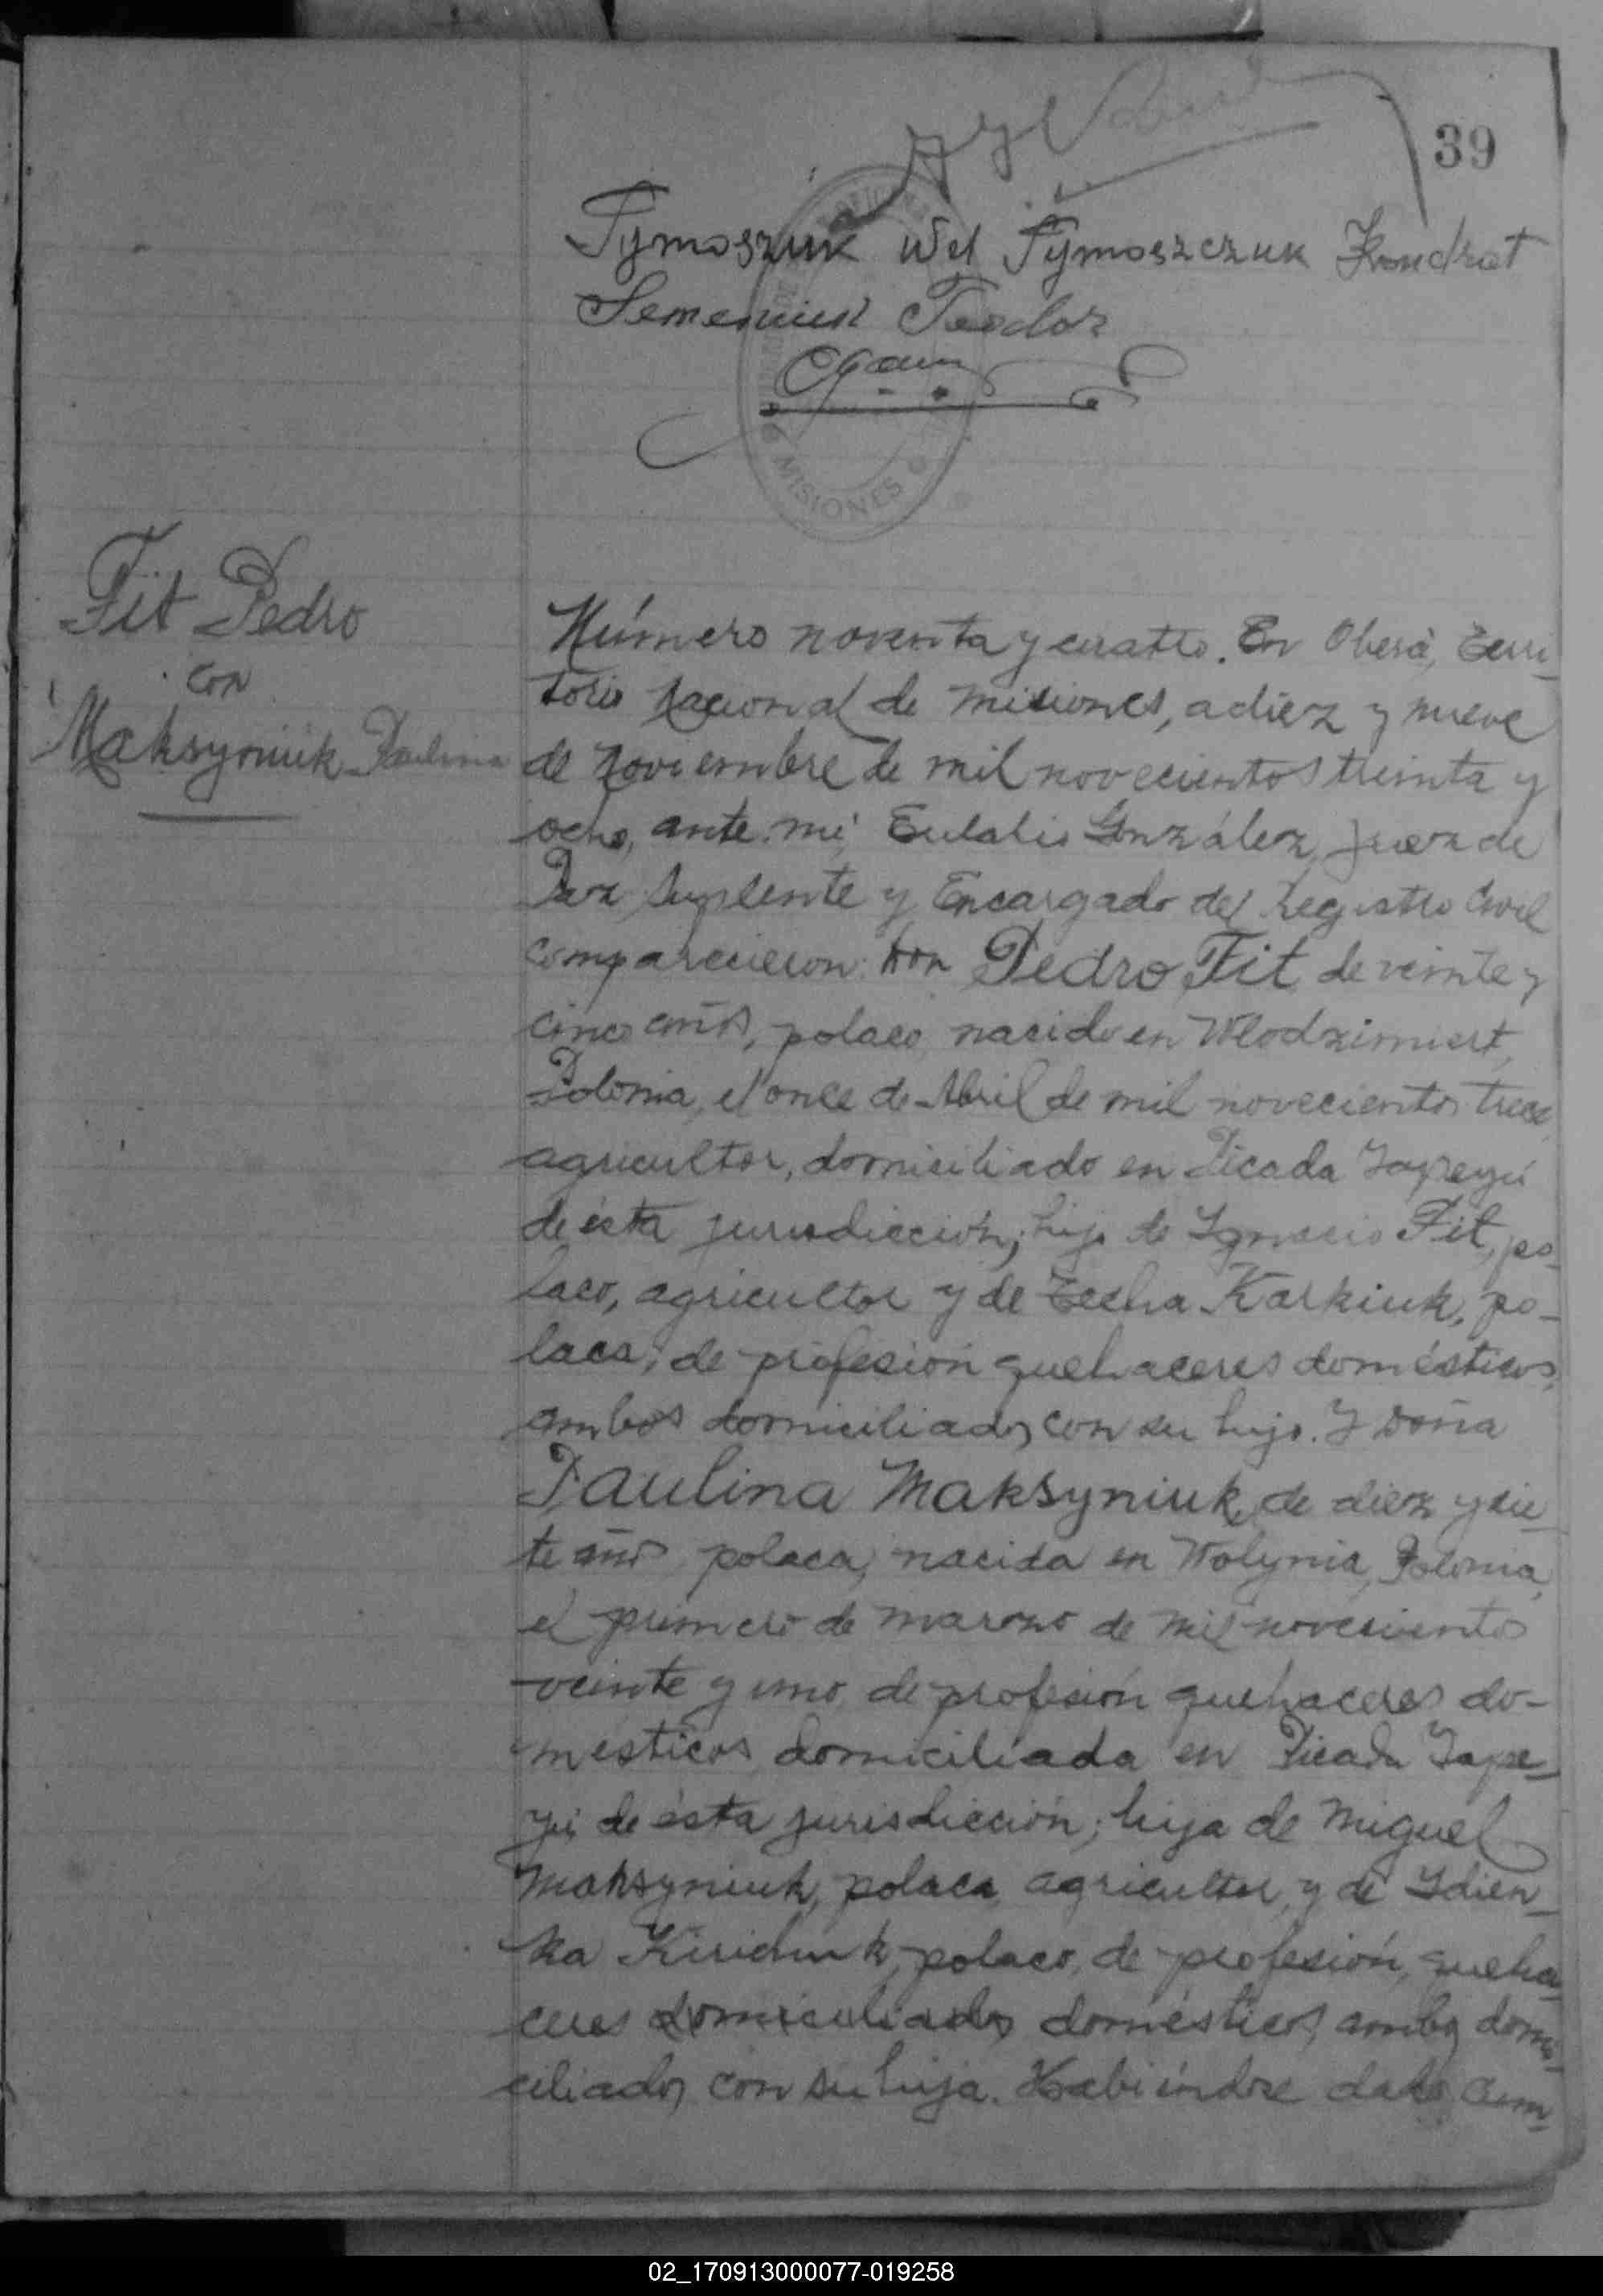 39
Tymoszuk Wel Tymoszczuk Kondrat
Semeniuk Teodor
MISIONES
Fit Pedro
con
Maksyniuk Paulina
Número noventa y cuatro. En Oberá, Terri-
torio Nacional de Misiones, a diez y nueve
de Noviembre de mil novecientos treinta y
ocho, ante mí, Eulalio González, Juez de
Paz Suplente y Encargado del Registro Civil
comparecieron: Don Pedro Fit, de veinte y
cinco años, polaco, nacido en Wlodzimiert,
Polonia, el once de Abril de mil novecientos trece,
agricultor, domiciliado en Picada Yapeyú
de ésta jurisdicción; hijo de Ygnacio Fit, po-
laco, agricultor y de Techa Karkiuk, po-
laca, de profesión quehaceres domésticos,
ambos domiciliados con su hijo. Y Doña
Paulina Maksyniuk, de diez y sie-
te años, polaca, nacida en Wolynia, Polonia,
el primero de marzo de mil novecientos
veinte y uno, de profesión quehaceres do-
mésticos, domiciliada en Picada Yape-
yú de ésta jurisdicción; hija de Miguel
Maksyniuk, polaca, agricultor, y de Ydien-
ka, polaco, de profesión, queha-
ceres domiciliados domésticos, ambos domi-
ciliados con su hija. Habiéndose dado cum-
02_170913000077-019258